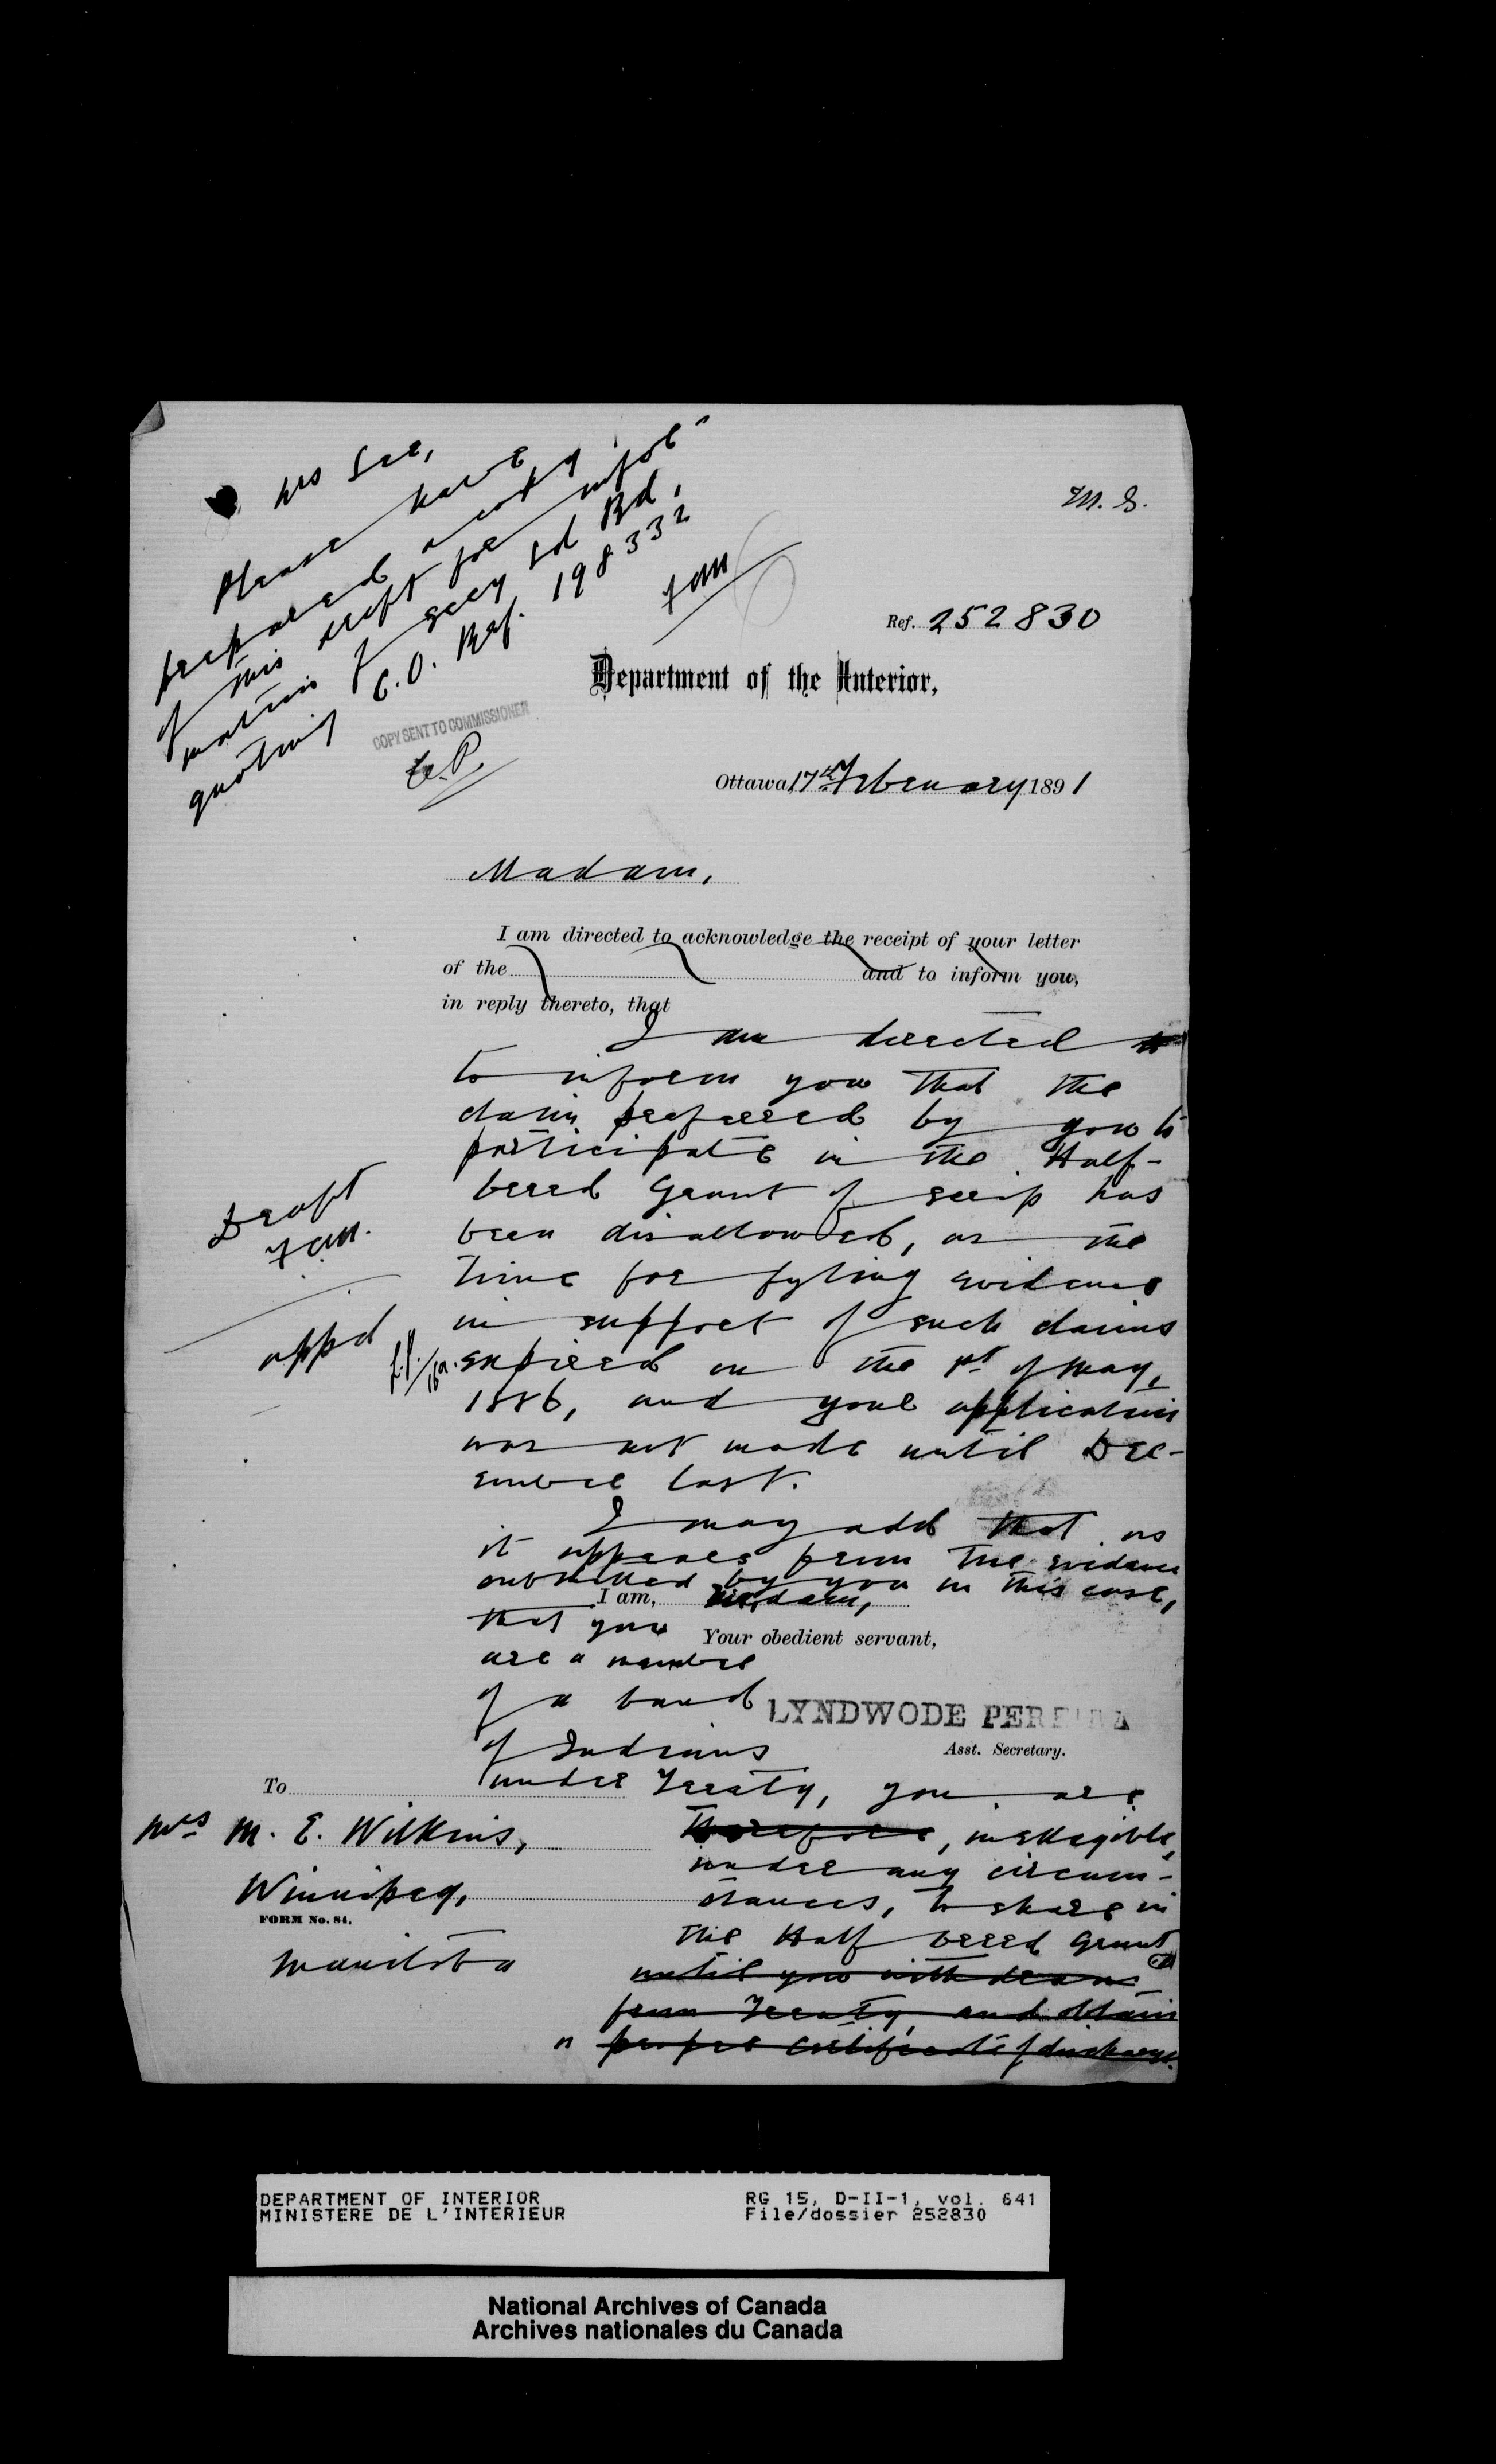 Mrs See,
Please have
prepared a copy
of this draft for infor-
mation of Secy Ld Bd,
quoting C.O. Ref. 198332
COPY SENT TO COMMISSIONER
M. S.
Ref. 252830
Department of the Interior,
Ottawa, 17th February 1891
Madam,
I am directed to acknowledge the receipt of your letter
of the and to inform you,
in reply thereto, that
I am directed
to inform you that the
claim preferred by you to
participate in the Half-
breed Grant of scrip has
been disallowed, as the
time for fyling evidence
in support of such claims
expired on the 1st of May,
1886, and your application
was not made until Dec-
ember last.
Draft
appd
I may add that as
it appears from the evidence
submitted by you in this case,
I am, Madam,
that you
Your obedient servant,
are a member
of a band
LYNDWODE PEREIRA
of Indians
Asst. Secretary.
under Treaty, you are
To
Mrs M. E. Wilkins,
Winnipeg,
FORM No. 84.
Manitoba
therefore, inelegible,
under any circum-
stances, to share in
the Half breed Grant
until you withdraw
from Treaty, and obtain
a proper certificate of discharge.
DEPARTMENT OF INTERIOR
MINISTERE DE L'INTERIEUR
RG 15, D-II-1, vol. 641
File/dossier 252830
National Archives of Canada
Archives nationales du Canada